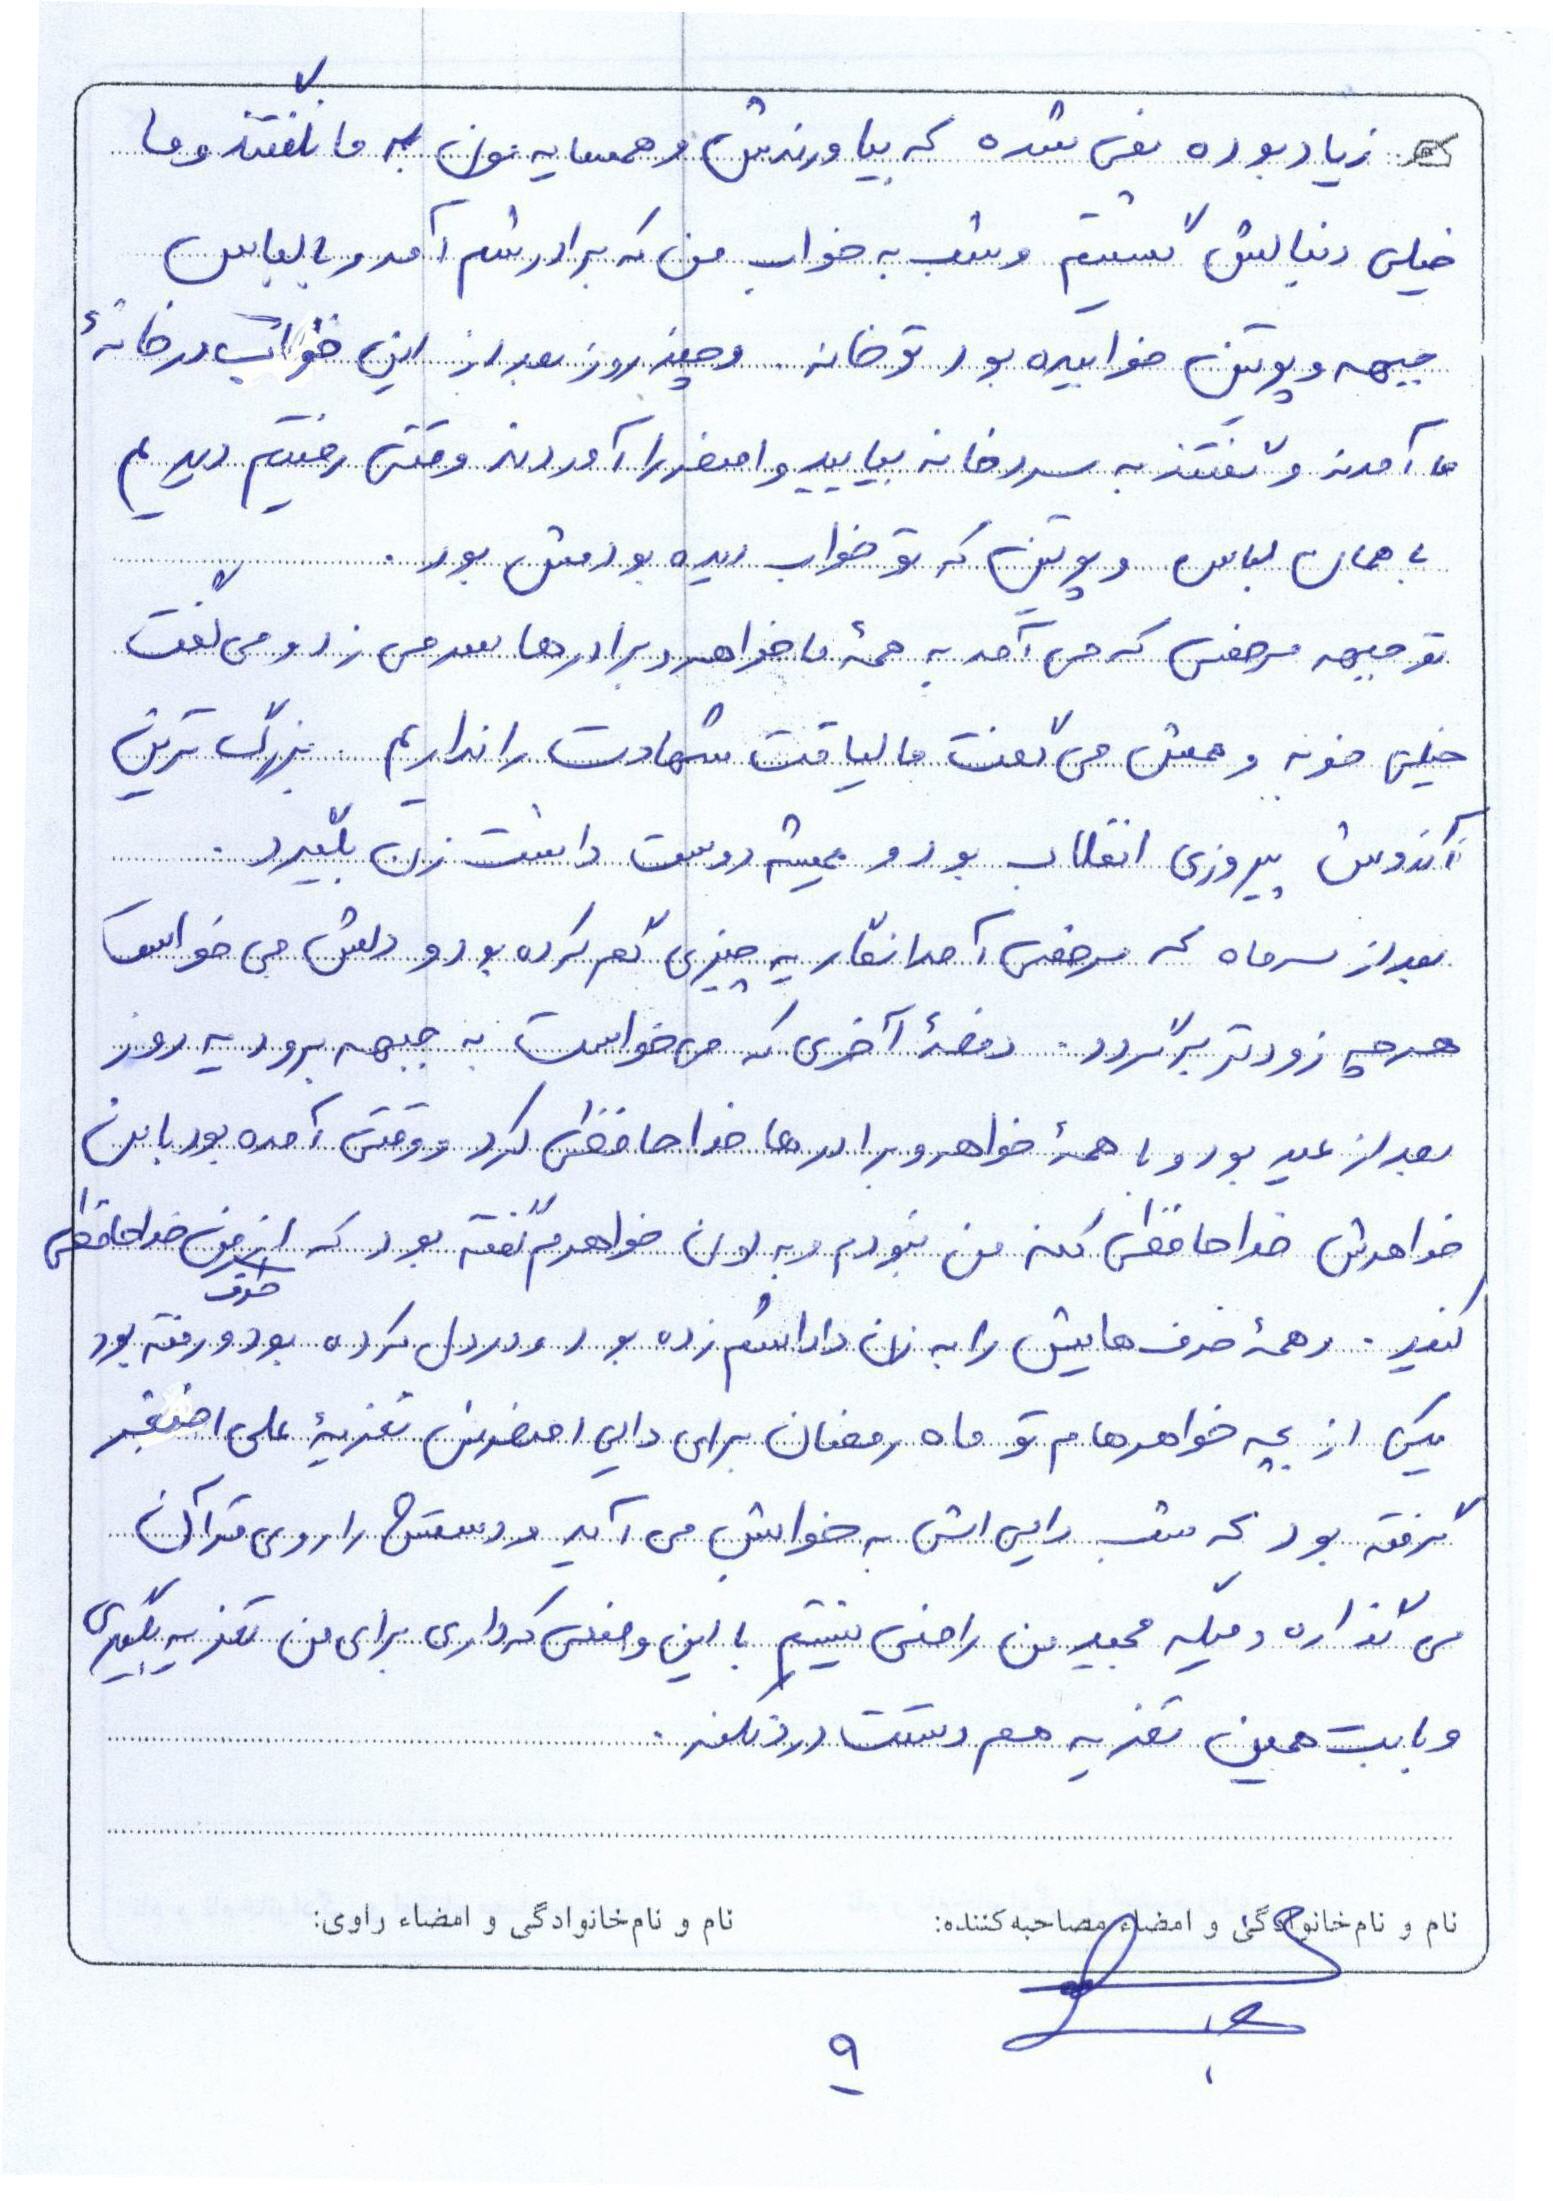 زیاد بوده نمی شده که بیاورندش و همسایه مون به ما نگفتند و ما
خیلی دنبالش گشتیم و شب به خواب من که برادرشم آمد و با لباس
جبهه و پوتین خوابیده بود تو خانه و چند روز بعد از این خواب در خانهٔ
ما آمدند و گفتند به سردخانه بیایید و اصغر را آوردند وقتی رفتیم دیدیم
با همان لباس و پوتین که تو خواب دیده بودمش بود .
تو جبهه مرخصی که می آمد به همهٔ ما خواهر و برادرها سر می زد و می گفت
خیلی خوبه و همش می گفت ما لیاقت شهادت را نداریم . بزرگ ترین
آرزوش پیروزی انقلاب بود و همیشه دوست داشت زن بگیرد .
بعد از سه ماه که مرخصی آمد انگار یه چیزی گم کرده بود و دلش می خواست
هر چه زودتر برگردد . دفعهٔ آخری که می خواست به جبهه برود یه روز
بعد از عید بود و با همهٔ خواهر و برادرها خداحافظی کرد و وقتی آمده بود با این
خواهرش خداحافظی کنه من نبودم و به اون خواهرم گفته بود که از من خداحافظی
کنید . و همهٔ حرف هایش را به زن داداشم زده بود و درددل کرده بود و رفته بود
یکی از بچه خواهرهام تو ماه رمضان برای دایی اصغرش تعزیهٔ علی اصغر
گرفته بود که شب دایی اش به خوابش می آید و دستش را روی قرآن
می گذاره و میگه مجید من راضی نیستم با این وضعی که داری برای من تعزیه بگیری
و بابت همین تعزیه هم دستت درد نکنه .
نام و نام‌خانوادگی و امضاء مصاحبه‌کننده: نام و نام‌خانوادگی و امضاء راوی:
۹